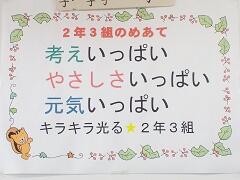 ２年３組のめあて
考えいっぱい
やさしさいっぱい
元気いっぱい
キラキラ光る★２年３組